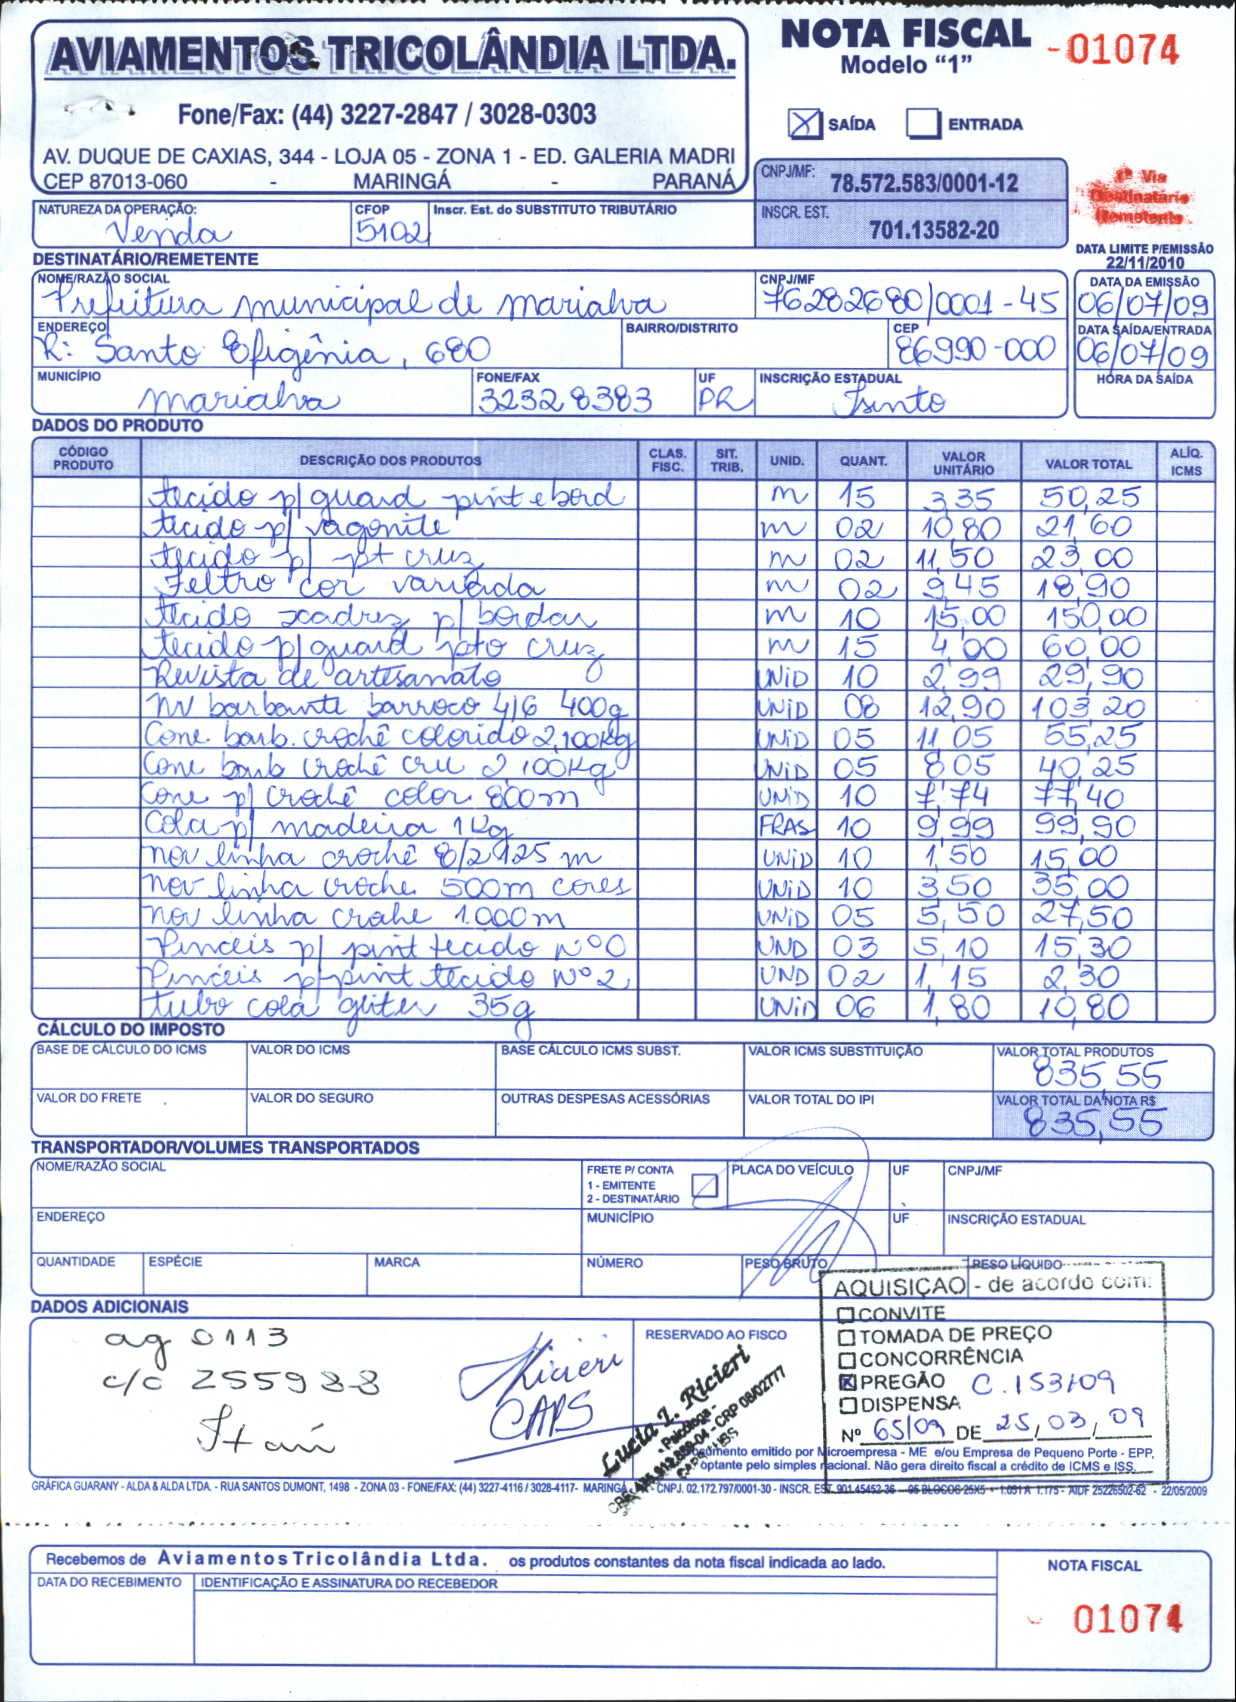 AVIAMENTOS TRICOLÂNDIA LTDA.
Fone/Fax: (44) 3227-2847 / 3028-0303
AV. DUQUE DE CAXIAS, 344 - LOJA 05 - ZONA 1 - ED. GALERIA MADRI
CEP 87013-060 - MARINGÁ - PARANÁ
NOTA FISCAL
Modelo "1"
-01074
X SAÍDA ENTRADA
CNPJ/MF: 78.572.583/0001-12
INSCR. EST. 701.13582-20
1ª Via
Destinatário
Remetente
DATA LIMITE P/EMISSÃO
22/11/2010
NATUREZA DA OPERAÇÃO: Venda
CFOP 5102
Inscr. Est. do SUBSTITUTO TRIBUTÁRIO
DESTINATÁRIO/REMETENTE
NOME/RAZÃO SOCIAL Prefeitura municipal de marialva
CNPJ/MF 76282680/0001-45
DATA DA EMISSÃO 06/07/09
ENDEREÇO R: Santo Efigênia, 680
BAIRRO/DISTRITO
CEP 86990-000
DATA SAÍDA/ENTRADA 06/07/09
MUNICÍPIO marialva
FONE/FAX 32328383
UF PR
INSCRIÇÃO ESTADUAL Isento
HORA DA SAÍDA
DADOS DO PRODUTO
CÓDIGO PRODUTO DESCRIÇÃO DOS PRODUTOS CLAS. FISC. SIT. TRIB. UNID. QUANT. VALOR UNITÁRIO VALOR TOTAL ALÍQ. ICMS
tecido p/ guard pint e bord m 15 3,35 50,25
tecido p/ vagonite m 02 10,80 21,60
tecido p/ pt cruz m 02 11,50 23,00
Feltro cor variada m 02 9,45 18,90
tecido xadrez p/ bordar m 10 15,00 150,00
tecido p/ guard pto cruz m 15 4,00 60,00
Revista de artesanato UNID 10 2,99 29,90
nv barbante barroco 4/6 400g UNID 08 12,90 103,20
Cone barb. crochê colorido 2,100Kg UNID 05 11,05 55,25
Cone barb crochê cru 2,100Kg UNID 05 8,05 40,25
Cone p/ crochê color 800m UNID 10 7,74 77,40
Cola p/ madeira 1Kg FRAS 10 9,99 99,90
nov linha crochê 8/2 125 m UNID 10 1,50 15,00
nov linha croche 500m cores UNID 10 3,50 35,00
nov linha crohe 1.000m UNID 05 5,50 27,50
Pinceis p/ pint tecido nº0 UND 03 5,10 15,30
Pinceis p/ pint tecido nº2 UND 02 1,15 2,30
tubo cola gliter 35g UNID 06 1,80 10,80
CÁLCULO DO IMPOSTO
BASE DE CÁLCULO DO ICMS VALOR DO ICMS BASE CÁLCULO ICMS SUBST. VALOR ICMS SUBSTITUIÇÃO VALOR TOTAL PRODUTOS
835,55
VALOR DO FRETE VALOR DO SEGURO OUTRAS DESPESAS ACESSÓRIAS VALOR TOTAL DO IPI VALOR TOTAL DA NOTA R$
835,55
TRANSPORTADOR/VOLUMES TRANSPORTADOS
NOME/RAZÃO SOCIAL FRETE P/ CONTA PLACA DO VEÍCULO UF CNPJ/MF
1 - EMITENTE
2 - DESTINATÁRIO
ENDEREÇO MUNICÍPIO UF INSCRIÇÃO ESTADUAL
QUANTIDADE ESPÉCIE MARCA NÚMERO PESO BRUTO PESO LÍQUIDO
DADOS ADICIONAIS
ag 0113
c/c 25593-8
Itaú
Ricieri
CAPS
RESERVADO AO FISCO
Lucia I. Ricieri
- Psicóloga -
CRP 08/02777
AQUISIÇAO - de acordo com:
CONVITE
TOMADA DE PREÇO
CONCORRÊNCIA
X PREGÃO C.153/09
DISPENSA
Nº 65/09 DE 25/03/09
Documento emitido por Microempresa - ME e/ou Empresa de Pequeno Porte - EPP,
optante pelo simples nacional. Não gera direito fiscal a crédito de ICMS e ISS.
GRÁFICA GUARANY - ALDA & ALDA LTDA. - RUA SANTOS DUMONT, 1498 - ZONA 03 - FONE/FAX: (44) 3227-4116 / 3028-4117- MARINGÁ - CNPJ. 02.172.797/0001-30 - INSCR. EST. 901.45452-36 - 05 BLOCOS 25X5 - 1.051 A 1.175 - AIDF 25226502-62 - 22/05/2009
Recebemos de Aviamentos Tricolândia Ltda. os produtos constantes da nota fiscal indicada ao lado.
DATA DO RECEBIMENTO IDENTIFICAÇÃO E ASSINATURA DO RECEBEDOR
NOTA FISCAL
- 01074